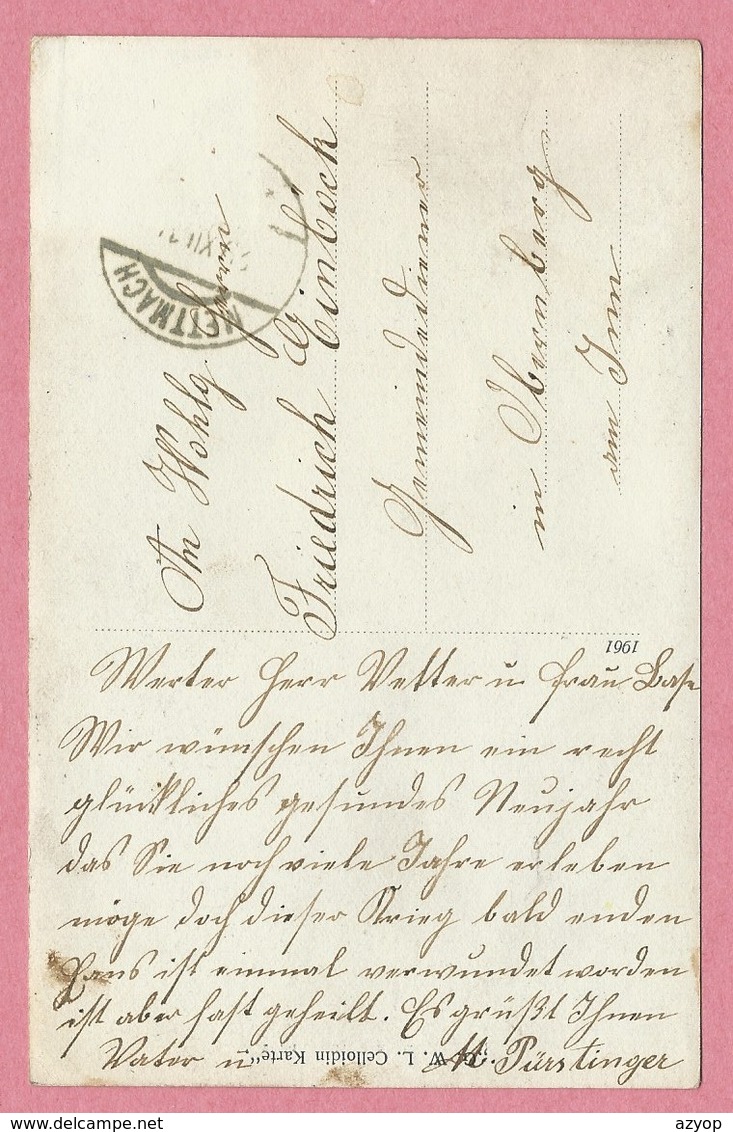 An Wohlg. Herrn
Friedrich Einböck
Gemeindediener
in Obernberg
am Inn
METTMACH
XII
1961
Werter Herr Vetter u Frau Base
Wir wünschen Ihnen ein recht
glückliches gesundes Neujahr
das Sie noch viele Jahre erleben
möge doch dieser Krieg bald enden
Hans ist einmal verwundet worden
ist aber fast geheilt. Es grüßt Ihnen
Vater u M. Pürstinger
W. L. Celloidin Karte"
delcampe.net
azyop